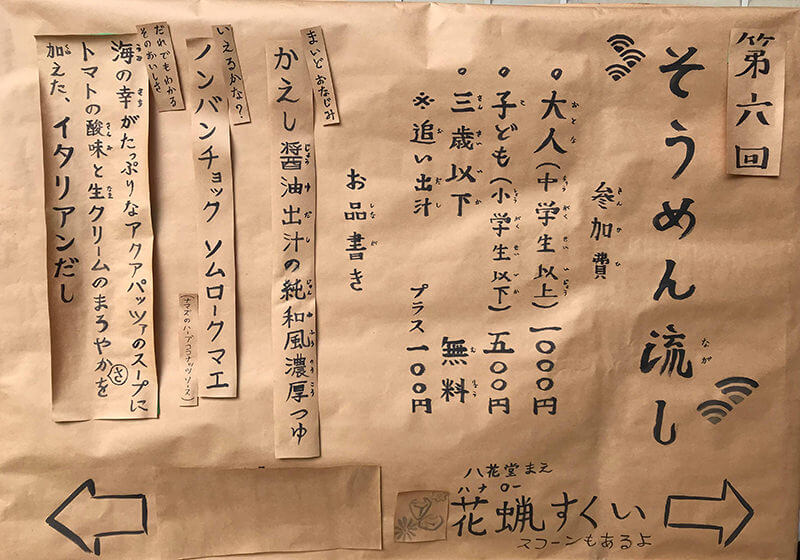 第六回
そうめん流し
参加費
。大人(中学生以上)一〇〇〇円
。子ども(小学生以下)五〇〇円
。三歳以下 無料
※追い出汁 プラス一〇〇円
お品書き
まいど おなじみ
かえし醤油出汁の純和風濃厚つゆ
いえるかな？
ノンバンチョック ソムロークマエ
(ナマズのハーブココナッツソース)
だれでもわかる
そのおいしさ
海の幸がたっぷりなアクアパッツァのスープに
トマトの酸味と生クリームのまろやかさを
加えた、イタリアンだし
八花堂まえ
ハナロー
花蝋すくい
スコーンもあるよ